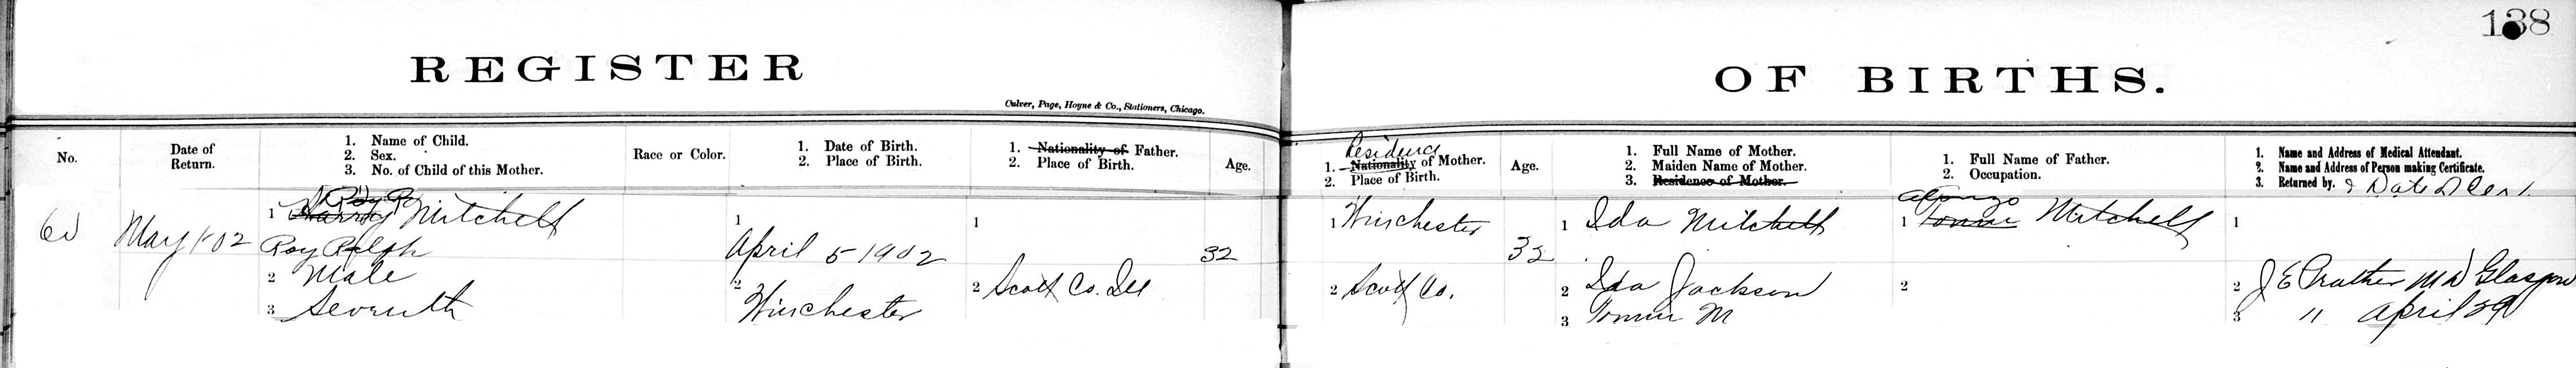 138
REGISTER OF BIRTHS.
Culver, Page, Hoyne & Co., Stationers, Chicago.
No.
Date of
Return.
1. Name of Child.
2. Sex.
3. No. of Child of this Mother.
Race or Color.
1. Date of Birth.
2. Place of Birth.
1. Nationality of Father.
2. Place of Birth.
Age.
Residence
1. Nationality of Mother.
2. Place of Birth.
Age.
1. Full Name of Mother.
2. Maiden Name of Mother.
3. Residence of Mother.
1. Full Name of Father.
2. Occupation.
1. Name and Address of Medical Attendant.
2. Name and Address of Person making Certificate.
3. Returned by. & Date
May 1-02
Roy R
1 Harry Mitchell
Roy Ralph
2 Male
3 Seventh
1
April 5-1902
2
Winchester
1
2 Scott Co. Ill
32
1 Winchester
2 Scott Co.
32
1 Ida Mitchell
2 Ida Jackson
3 M
Alonzo
1 Mitchell
2
1
2 J E Prather M D Glasgow
3 " April 29